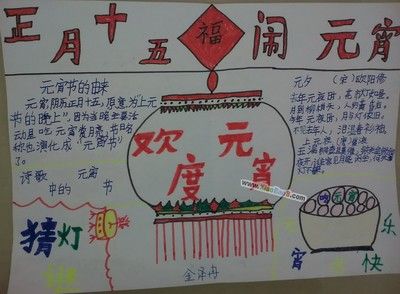 正月十五 福 闹元宵
元宵节的由来
元宵,阴历正月十五,原意为"上元
节的晚上",因为当晚主要活
动是吃元宵赏月,节日名
称也演化成"元宵节"
了。
诗歌 元宵
中的 节
猜灯
欢度元宵
www.
全泽冉
元夕 (宋)欧阳修
去年元夜时,花市灯如昼。
月到柳梢头,人约黄昏后。
今年元夜时,月与灯依旧。
不见去年人,泪湿春衫袖。
吃元宵
元宵快乐